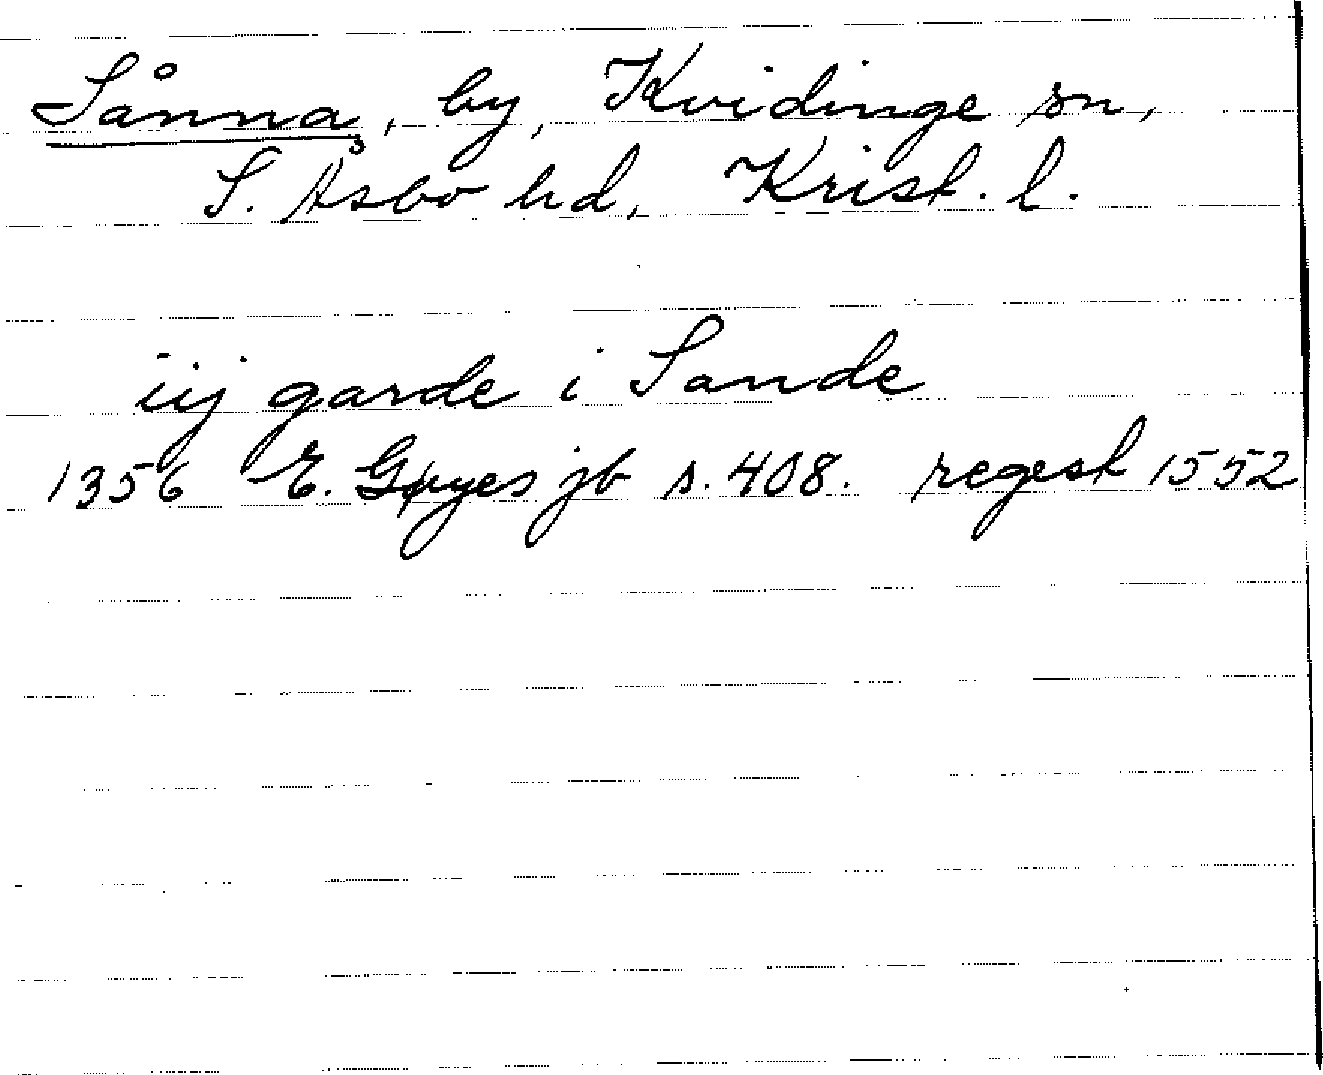 Sånna, by, Kvidinge sn,
S. Åsbo hd, Krist. l.
iij garde i Sande
1356 E. Gøyes jb s. 408. regest 1552